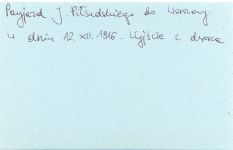 Przyjazd J Piłsudskiego do Warszawy
w dniu 12. XII. 1916 - Wyjście z dworca